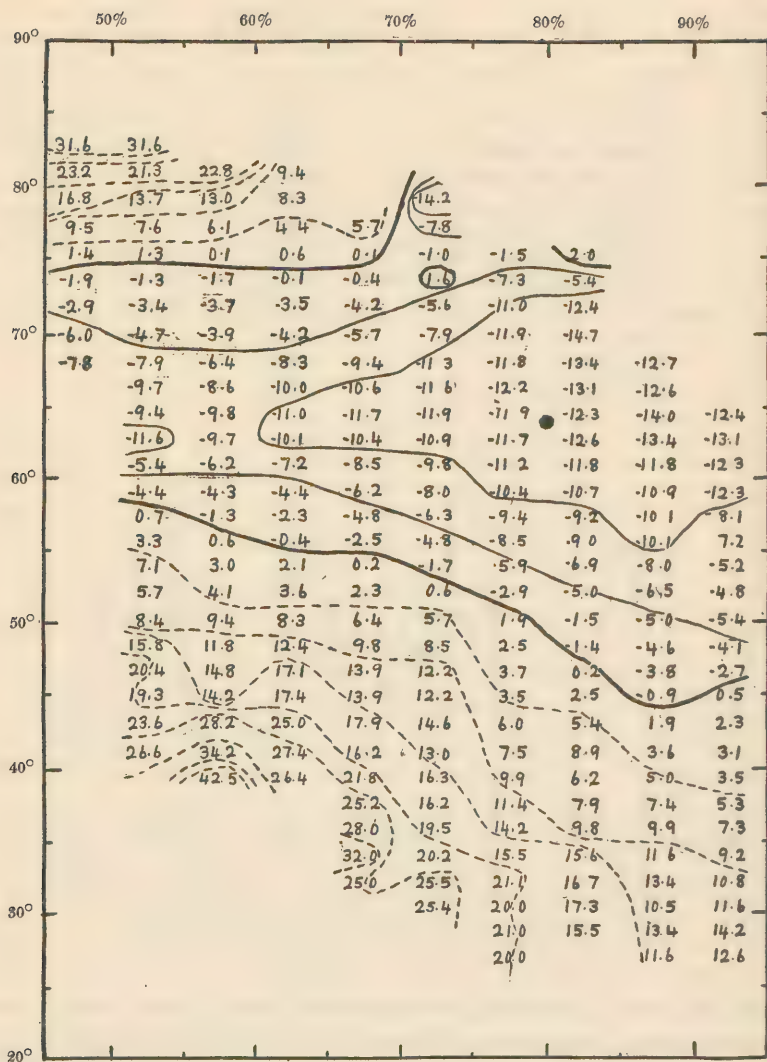 50% 60% 70% 80% 90%
90°
31.6 31.6
23.2 21.3 22.8 9.4
80°
16.8 13.7 13.0 8.3 -14.2
9.5 7.6 6.1 4.4 5.7 -7.8
1.4 1.3 0.1 0.6 0.1 -1.0 -1.5 2.0
-1.9 -1.3 -1.7 -0.1 -0.4 1.6 -7.3 -5.4
-2.9 -3.4 -3.7 -3.5 -4.2 -5.6 -11.0 -12.4
70°
-6.0 -4.7 -3.9 -4.2 -5.7 -7.9 -11.9 -14.7
-7.8 -7.9 -6.4 -8.3 -9.4 -11 3 -11.8 -13.4 -12.7
-9.7 -8.6 -10.0 -10.6 -11 6 -12.2 -13.1 -12.6
-9.4 -9.8 -11.0 -11.7 -11.9 -11 9 -12.3 -14.0 -12.4
-11.6 -9.7 -10.1 -10.4 -10.9 -11.7 -12.6 -13.4 -13.1
-5.4 -6.2 -7.2 -8.5 -9.8 -11 2 -11.8 -11.8 -12 3
60°
-4.4 -4.3 -4.4 -6.2 -8.0 -10.4 -10.7 -10.9 -12.3
0.7 -1.3 -2.3 -4.8 -6.3 -9.4 -9.2 -10 1 -8.1
3.3 0.6 -0.4 -2.5 -4.8 -8.5 -9 0 -10.1 7.2
7.1 3.0 2.1 0.2 -1.7 -5.9 -6.9 -8.0 -5.2
5.7 4.1 3.6 2.3 0.6 -2.9 -5.0 -6.5 -4.8
50°
8.4 9.4 8.3 6.4 5.7 1.9 -1.5 -5.0 -5.4
15.8 11.8 12.4 9.8 8.5 2.5 -1.4 -4.6 -4.1
20.4 14.8 17.1 13.9 12.2 3.7 0.2 -3.8 -2.7
19.3 14.2 17.4 13.9 12.2 3.5 2.5 -0.9 0.5
23.6 28.2 25.0 17.9 14.6 6.0 5.4 1.9 2.3
26.6 34.2 27.4 16.2 13.0 7.5 8.9 3.6 3.1
40°
42.5 26.4 21.8 16.3 9.9 6.2 5.0 3.5
25.2 16.2 11.4 7.9 7.4 5.3
28.0 19.5 14.2 9.8 9.9 7.3
32.0 20.2 15.5 15.6 11 6 9.2
25.0 25.5 21.1 16 7 13.4 10.8
30°
25.4 20.0 17.3 10.5 11.6
21.0 15.5 13.4 14.2
20.0 11.6 12.6
20°